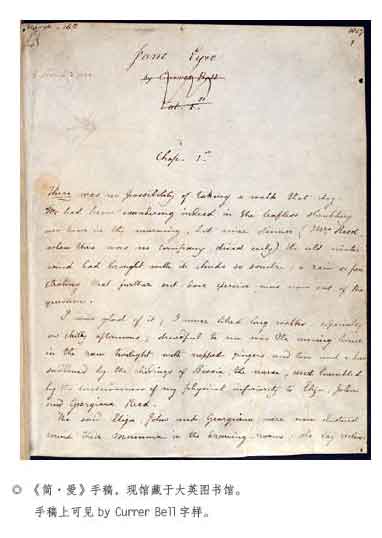 March 16th
1
Jane Eyre
by Currer Bell
Vol. 1st
Chap. 1st
There was no possibility of taking a walk that day.
We had been wandering indeed in the leafless shrubbery
an hour in the morning, but since dinner (Mrs Reed
when there was no company dined early) the cold winter
wind had brought with it clouds so sombre, a rain so pene-
trating that further out-door exercise was now out of the
question.
I was glad of it; I never liked long walks, especially
on chilly afternoons; dreadful to me was the coming home
in the raw twilight with nipped fingers and toes and a heart
saddened by the chidings of Bessie, the nurse, and humbled
by the consciousness of my physical inferiority to Eliza, John
and Georgiana Reed.
The said Eliza, John and Georgiana were now clustered
round their mamma in the drawing-room; she lay
◎ 《简·爱》手稿，现馆藏于大英图书馆。
手稿上可见 by Currer Bell 字样。